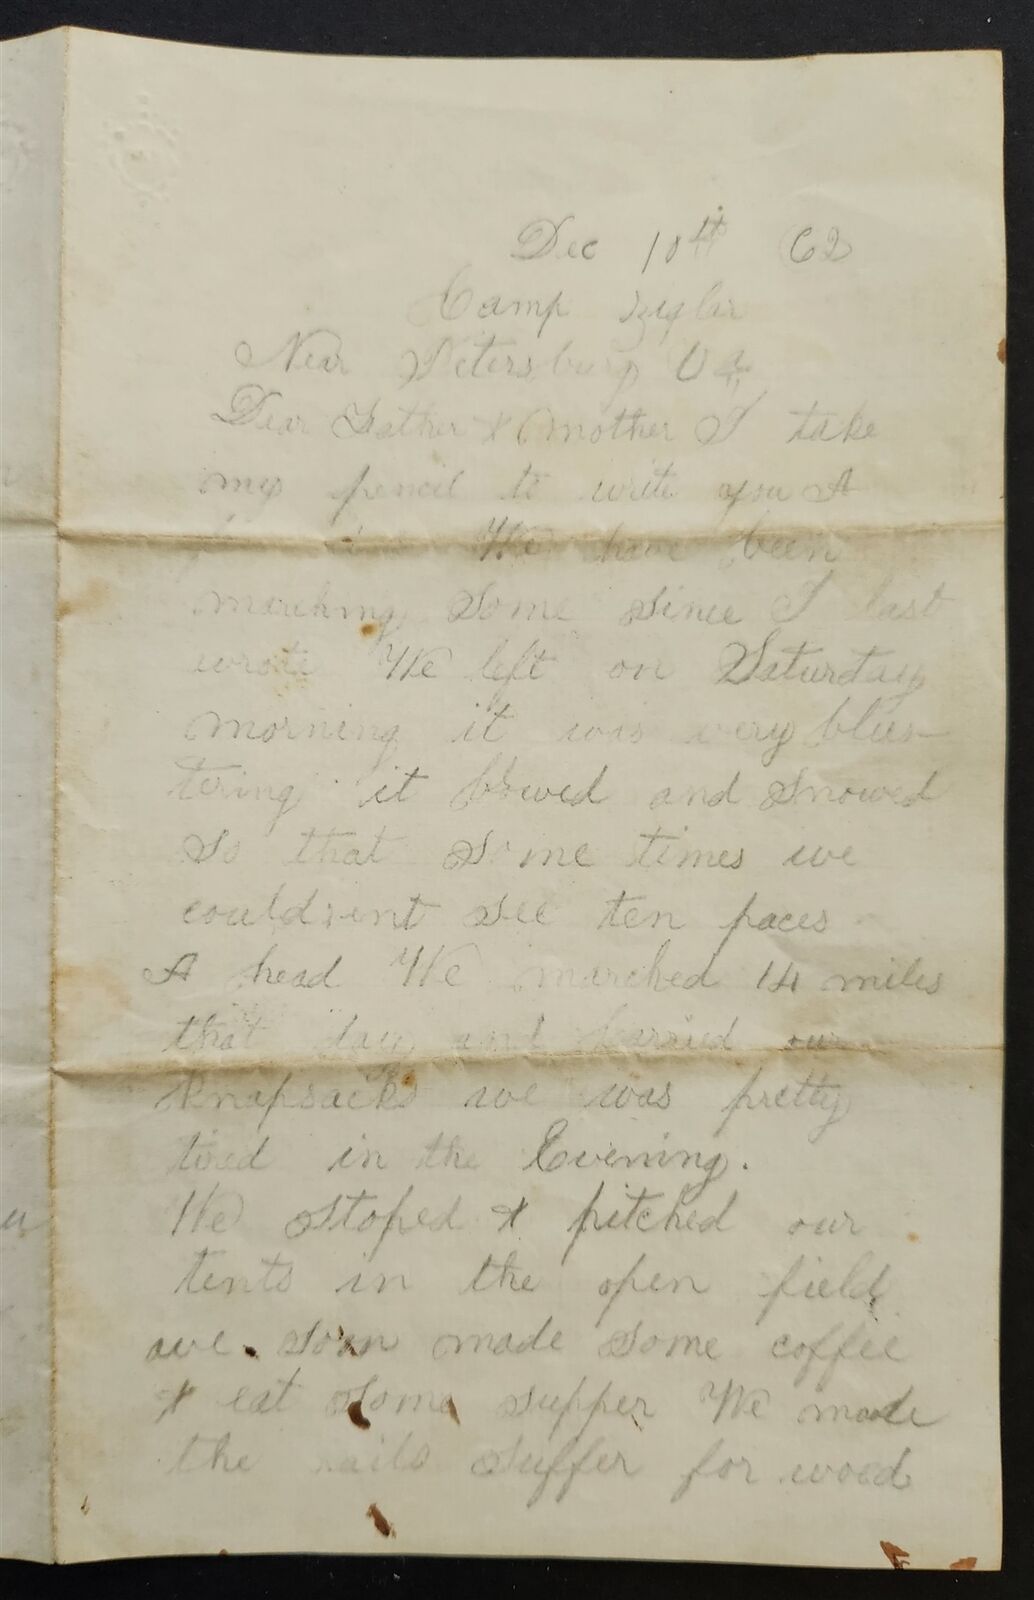 Dec 10th 62
Camp Ziglar
Near Petersburg Va.
Dear Father & Mother I take
my pencil to write you A
We have been
marching some since I last
wrote We left on Saturday
morning it was very blus-
tering it blowed and snowed
so that some times we
could,ent see ten paces
A head We marched 14 miles
that day and carried our
knapsacks we was pretty
tired in the Evening.
We stoped & pitched our
tents in the open field
we soon made some coffee
& eat some supper We made
the rails suffer for wood